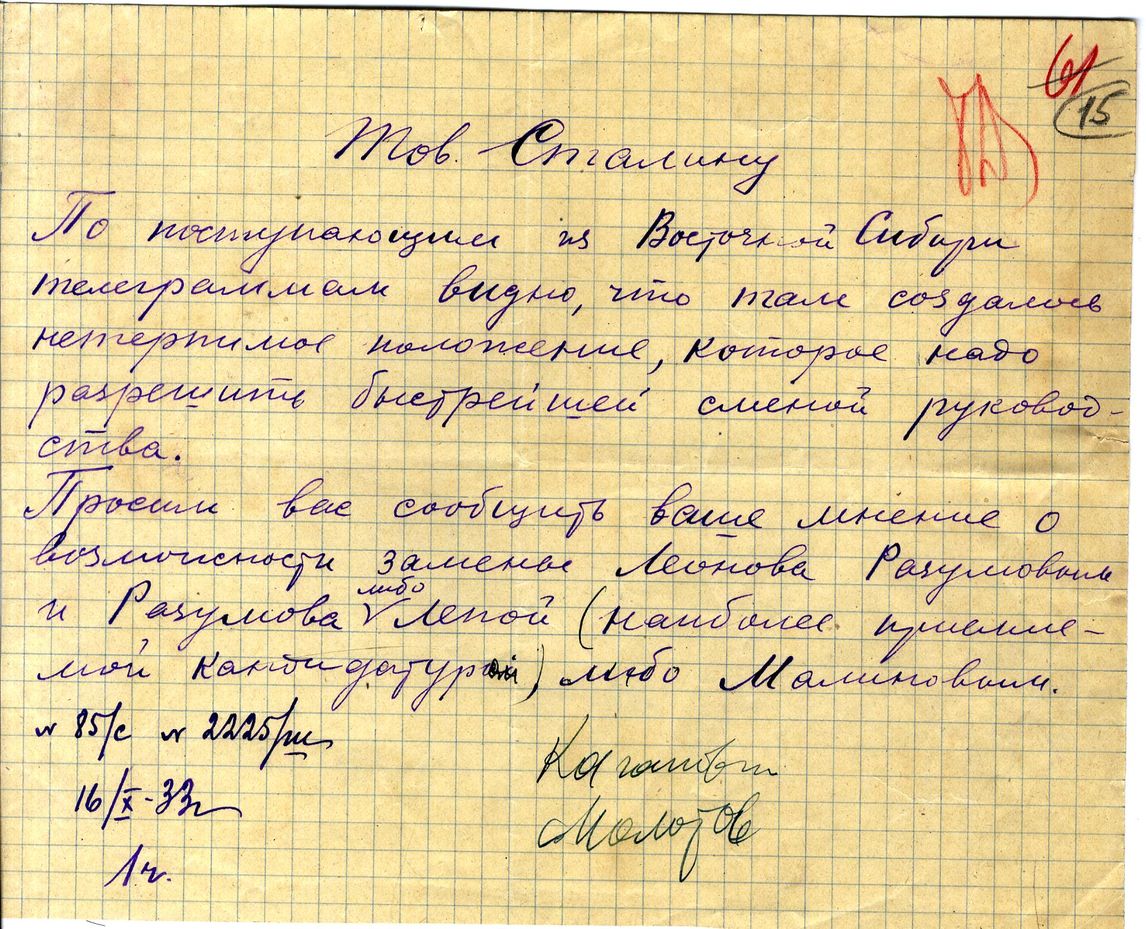 61
15
Тов. Сталину
По поступающим из Восточной Сибири
телеграммам видно, что там создалось
нетерпимое положение, которое надо
разрешить быстрейшей сменой руковод-
ства.
Просим вас сообщить ваше мнение о
возможности замены Леонова Разумовым
и Разумова либо Лепой (наиболее приемле-
мой кандидатурой) либо Малиновым.
№ 85/с № 2225/ш
16/X-33г
1ч.
Каганович
Молотов